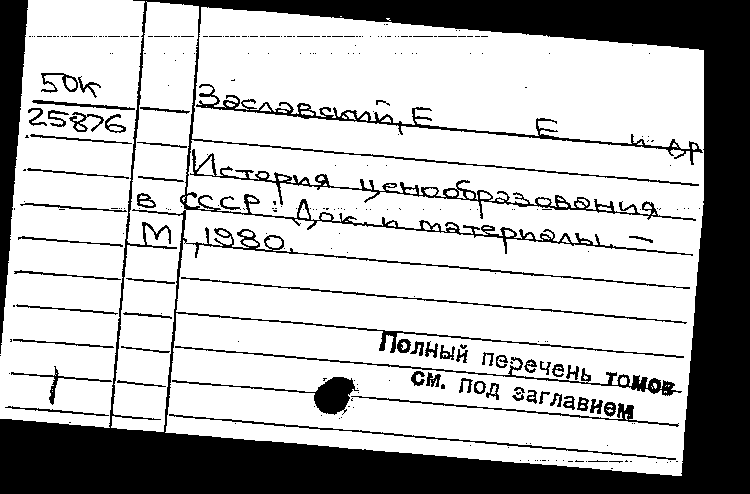 50К
25876
Заславский, Е Е и др
История ценообразования
в СССР: Док. и материалы. —
М., 1980.
Полный перечень томов
см. под заглавием
1